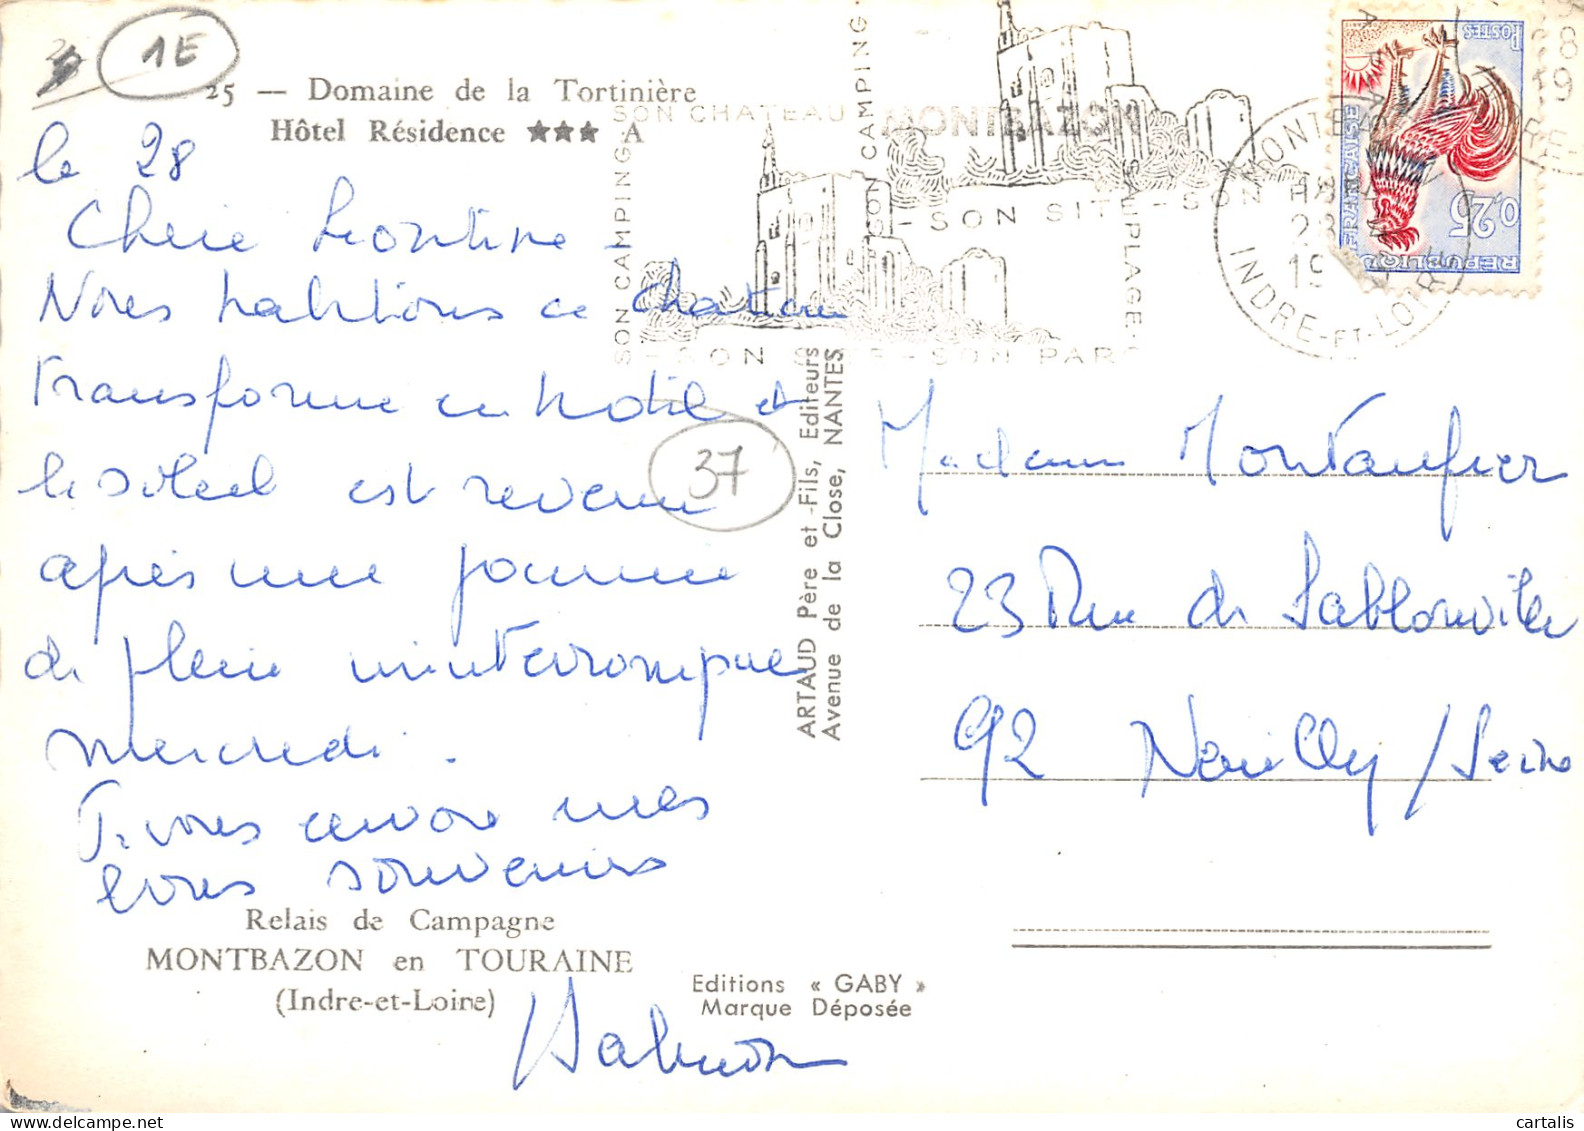 1E
25 — Domaine de la Tortinière
Hôtel Résidence ★★★ A
le 28
Chère Léontine
Nous habitons ce chateau
transformé en hotel et
le soleil est revenu
après une journée
de pluie ininterrompue
mercredi.
Je vous envoie mes
bons souvenirs
Relais de Campagne
MONTBAZON en TOURAINE
(Indre-et-Loire)
37
ARTAUD Père et Fils, Editeurs
Avenue de la Close, NANTES
Editions « GABY »
Marque Déposée
SON CHATEAU
MONTBAZON
SON CAMPING
SA PLAGE
- SON SITE - SON PARC
MONTBAZON
INDRE-ET-LOIRE
REPUBLIQUE FRANÇAISE
POSTES
0,25
Madame Montaufier
23 Rue de Sablonville
92 Neuilly/Seine
cartalis